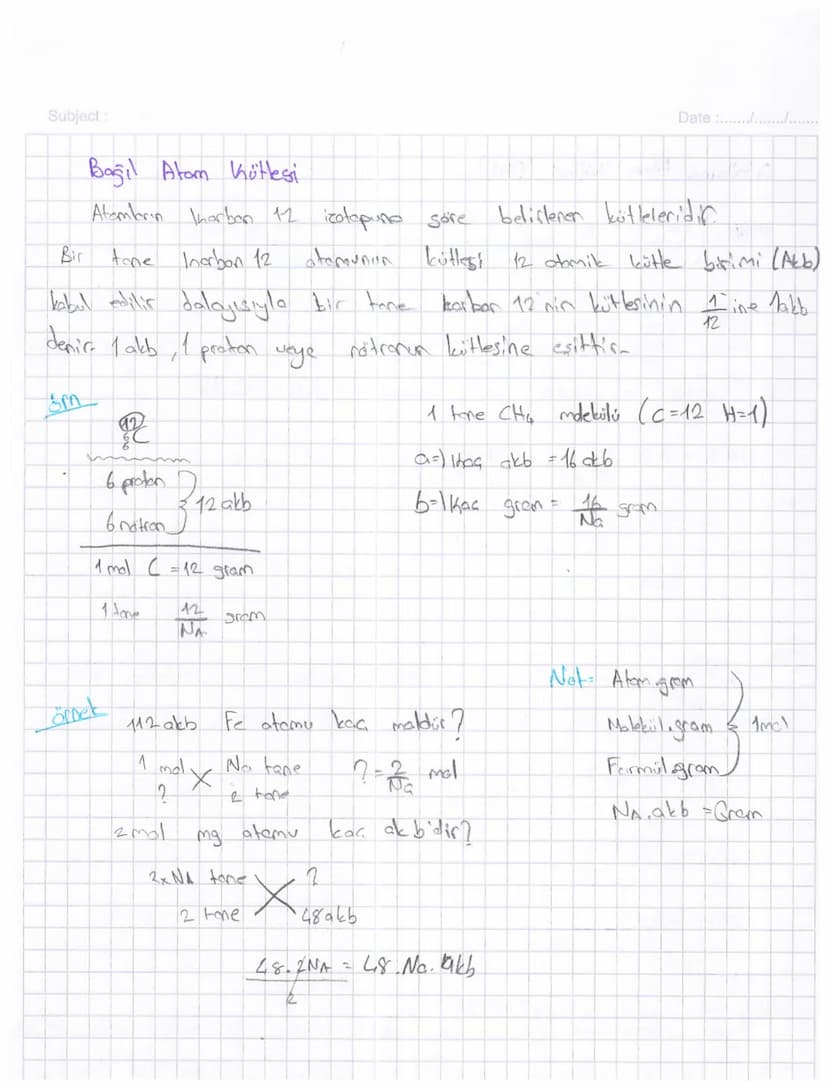 Subject :
Date :......./......./.......
Bağıl Atom Kütlesi
Atomların karbon 12 izotopuna göre belirlenen kütleleridir.
Bir tane karbon 12 atomunun kütlesi 12 atomik kütle birimi (Akb)
kabul edilir dolayısıyla bir tane karbon 12'nin kütlesinin 1/12 ine 1akb
denir. 1 akb, 1 proton veya nötronun kütlesine eşittir.
Örn
12 6 C
6 proton
6 nötron } 12 akb
1 mol C = 12 gram
1 tane 12/NA gram
1 tane CH4 molekülü (C=12 H=1)
a=) Kaç akb = 16 akb
b=) Kaç gram = 16/Na gram
Not= Atom.gram
Molekül.gram } 1mol
Formül.gram
NA.akb = Gram
örnek
112 akb Fe atomu kaç moldür?
1 mol X Na tane
? 2 tane
? = 2/Na mol
2 mol mg atomu kaç akb'dir?
2xNA tane ?
2 tane 48akb
48.2NA/2 = 48.Na.akb